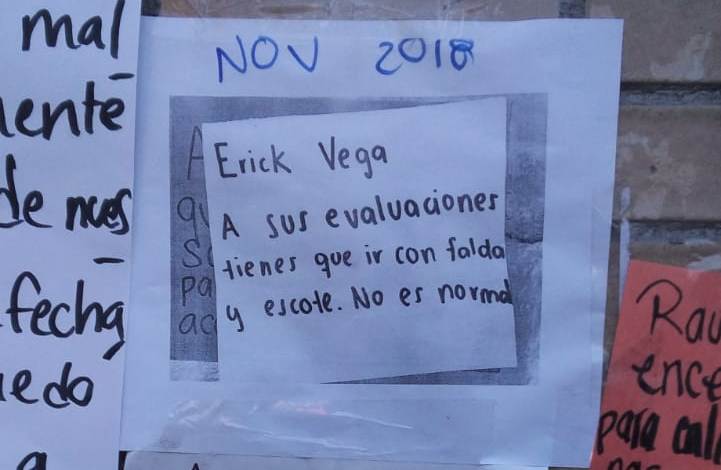 NOV 2018
Erick Vega
A sus evaluaciones
tienes que ir con falda
y escote. No es normal
mal
ente
de nues
fecha
edo
Rau
ence
para